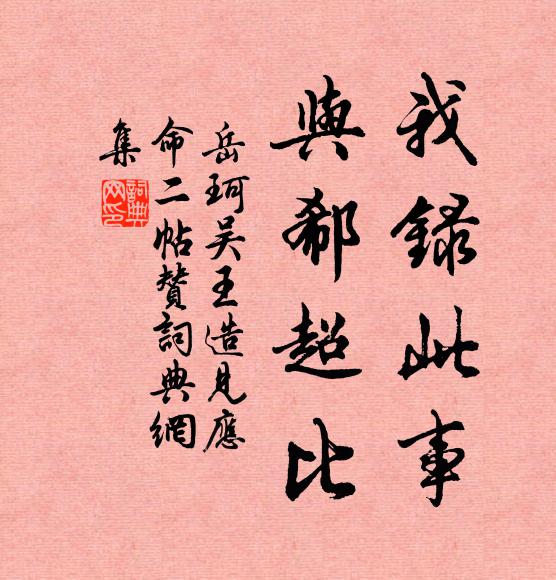 我録此事
與郗超比
岳珂吴王造見應
命二帖贊詞典網
集
詞典
网印